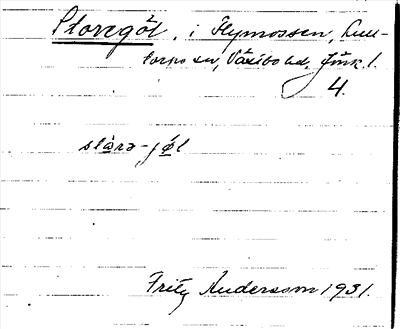 Storegöl, i Flymossen, Lann-
torps sn, Västbo hd, Jönk. l.
4.
stòrə-jö́l
Fritz Andersson 1931.